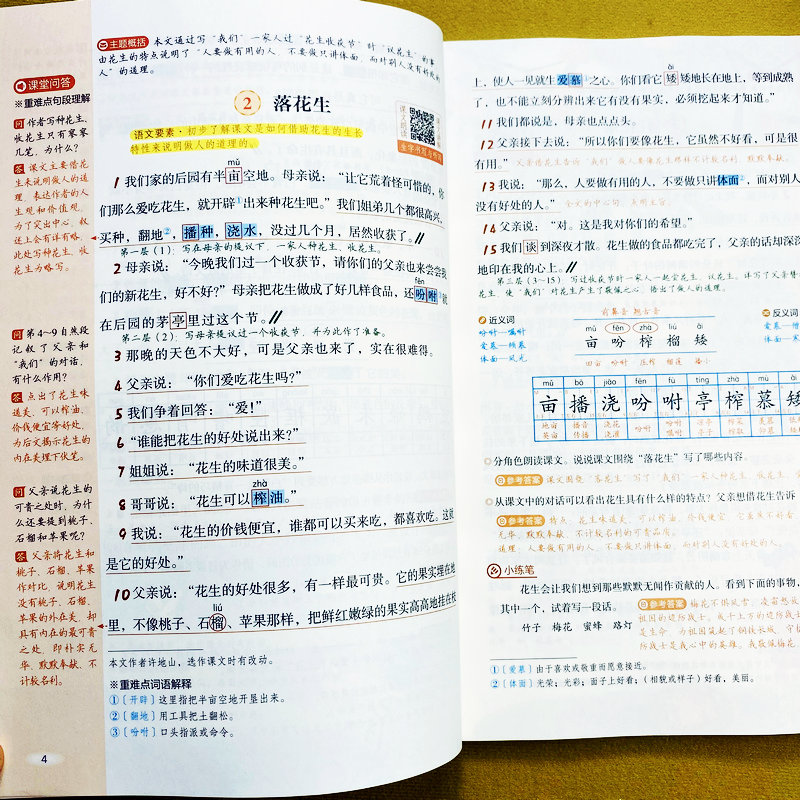 主题概括 本文通过写“我们”一家人过“花生收获节”时“议花生”的事
由花生的特点说明了“人要做有用的人，不要做只讲体面，而对别人没有好处的
人”的道理。
2 落花生
语文要素·初步了解课文是如何借助花生的生长
特性来说明做人的道理的。
mǔ
1 我们家的后园有半亩空地。母亲说：“让它荒着怪可惜的，你
们那么爱吃花生，就开辟①出来种花生吧。”我们姐弟几个都很高兴，
买种，翻地②，播种，浇水，没过几个月，居然收获了。//
第一层（1）：写在母亲的提议下，一家人种花生、收花生。
2 母亲说：“今晚我们过一个收获节，请你们的父亲也来尝尝我
fēn fù
们的新花生，好不好？”母亲把花生做成了好几样食品，还吩咐③就
在后园的茅亭里过这个节。//
第二层（2）：写母亲提议过一个收获节，并为此作了准备。
3 那晚的天色不大好，可是父亲也来了，实在很难得。
4 父亲说：“你们爱吃花生吗？”
5 我们争着回答：“爱！”
6 “谁能把花生的好处说出来？”
7 姐姐说：“花生的味道很美。”
zhà
8 哥哥说：“花生可以榨油。”
9 我说：“花生的价钱便宜，谁都可以买来吃，都喜欢吃。这就
是它的好处。”
10 父亲说：“花生的好处很多，有一样最可贵。它的果实埋在地
liú
里，不像桃子、石榴、苹果那样，把鲜红嫩绿的果实高高地挂在枝
本文作者许地山，选作课文时有改动。
※重难点词语解释
①〔开辟〕这里指把半亩空地开垦出来。
②〔翻地〕用工具把土翻松。
③〔吩咐〕口头指派或命令。
4
课堂问答
※重难点句段理解
问 作者写种花生、
收花生只有寥寥
几笔，为什么？
答 课文主要借花
生来说明做人的道
理，表达作者的人
生观和价值观，
为了突出中心，叙
述上会有详有略，
此处写种花生、收
花生为略写。
问 第4～9自然段
记叙了父亲和
“我们”的对话，
有什么作用？
答 点出了花生味
道美、可以榨油、
价钱便宜等好处，
为后文揭示花生的
内在美埋下伏笔。
问 父亲说花生的
可贵之处时，为什
么还要提到桃子、
石榴和苹果呢？
答 父亲将花生和
桃子、石榴、苹果
作对比，说明花生
没有桃子、石榴、
苹果的外在美，却
具有内在的最可贵
之处，即朴实无
华、默默奉献、不
计较名利。
ǎi
上，使人一见就生爱慕①之心。你们看它矮矮地长在地上，等到成熟
了，也不能立刻分辨出来它有没有果实，必须挖起来才知道。”
11 我们都说是，母亲也点点头。
12 父亲接下去说：“所以你们要像花生，它虽然不好看，可是很
有用。”
父亲借花生告诉“我们”做人要像花生那样不计名利、默默奉献。
13 我说：“那么，人要做有用的人，不要做只讲体面②，而对别人
没有好处的人。”
全文的中心句，点明主旨。
14 父亲说：“对。这是我对你们的希望。”
15 我们谈到深夜才散。花生做的食品都吃完了，父亲的话却深深
地印在我的心上。//
第三层（3～15）：写过收获节时一家人一起尝花生、议花生。详写了父亲赞
花生，使“我们”对花生产生了敬佩之心，悟出了做人的道理。
近义词
吩咐—嘱咐
爱慕—倾慕
体面—风光
前鼻音 翘舌音
mǔ fēn zhà liú ǎi
亩 吩 榨 榴 矮
反义词
mǔ bō jiāo fēn fù tíng zhà mù ǎi
亩 播 浇 吩 咐 亭 榨 慕 矮
分角色朗读课文。说说课文围绕“落花生”写了哪些内容。
从课文中的对话可以看出花生具有什么样的特点？父亲想借花生告诉
参考答案
小练笔
花生会让我们想到那些默默无闻作贡献的人。看到下面的事物，
其中一个，试着写一段话。
竹子 梅花 蜜蜂 路灯
①〔爱慕〕由于喜欢或敬重而愿意接近。
②〔体面〕光荣；光彩；面子上好看；（相貌或样子）好看，美丽。